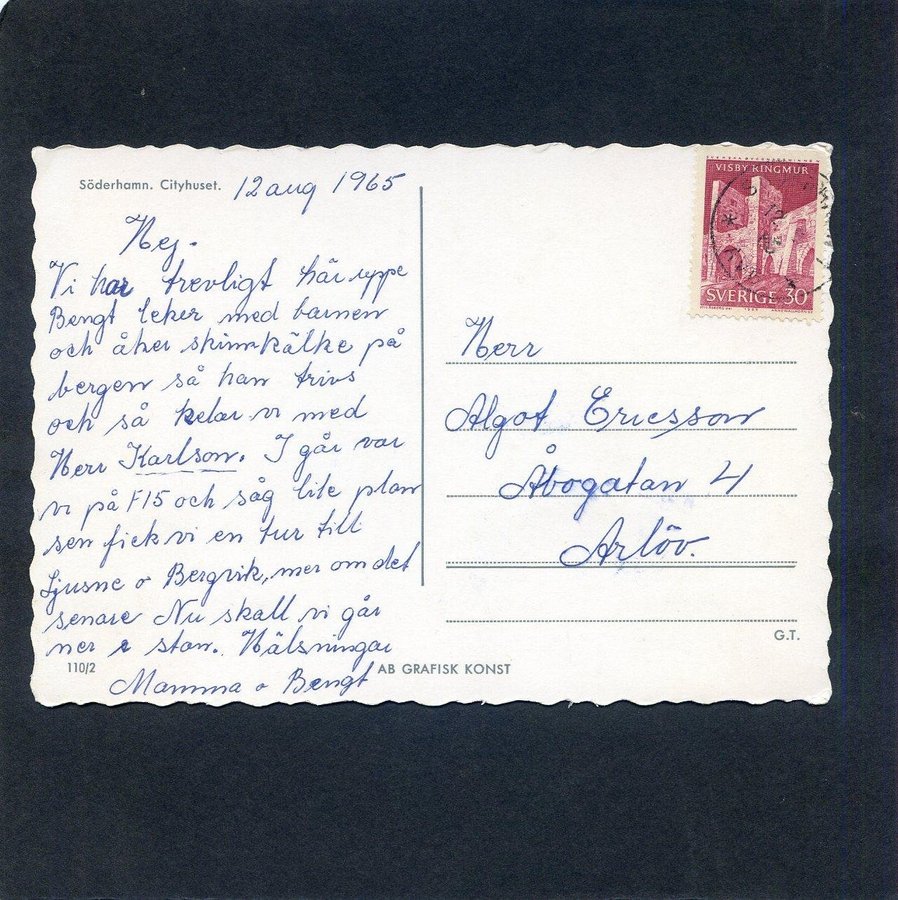 Söderhamn. Cityhuset. 12 aug 1965
Hej.
Vi har trevligt här uppe
Bengt leker med barnen
och åker skinnkälke på
bergen så han trivs
och så kelar vi med
Herr Karlson. I går var
vi på F15 och såg lite plan
sen fick vi en tur till
Ljusne o Bergvik, mer om det
senare Nu skall vi går
ner e stan. Hälsningar
Mamma o Bengt
110/2
AB GRAFISK KONST
VISBY RINGMUR
SVERIGE 30
Herr
Algot Ericsson
Åbogatan 4
Arlöv.
G.T.